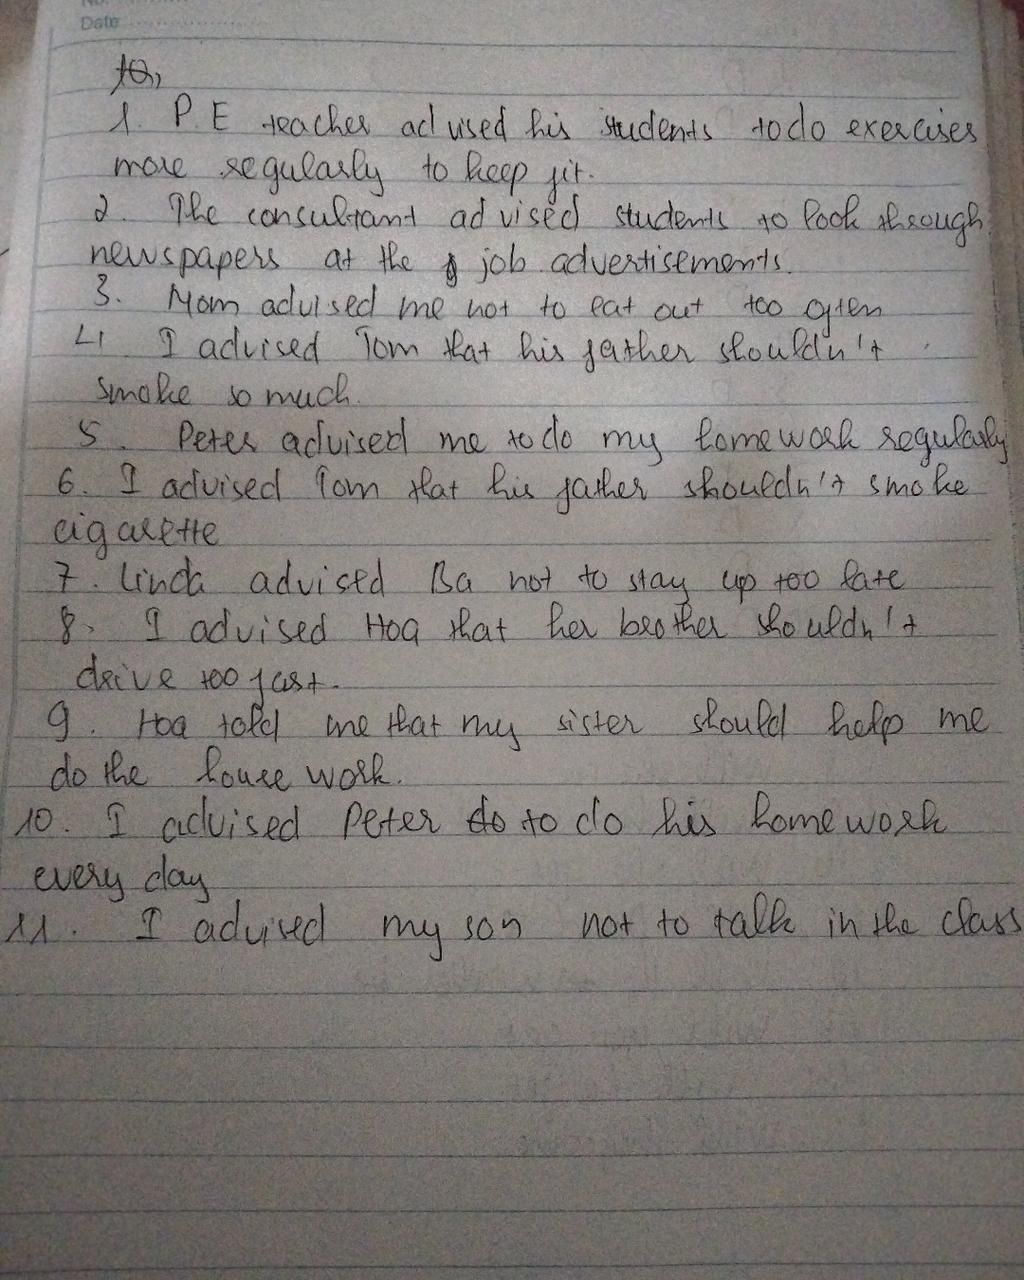 No.
Date
1. P.E teacher advised his students to do exercises
more regularly to keep fit.
2. The consultant advised students to look through
newspapers at the job advertisements.
3. Mom advised me not to eat out too often
4 I advised Tom that his father shouldn't
smoke so much.
5. Peter advised me to do my homework regularly
6. I advised Tom that his father shouldn't smoke
cigarette
7. Linda advised Ba not to stay up too late
8. I advised Hoa that her brother shouldn't
drive too fast.
9. Hoa told me that my sister should help me
do the house work.
10. I advised Peter do to do his homework
every day
11. I advised my son not to talk in the class